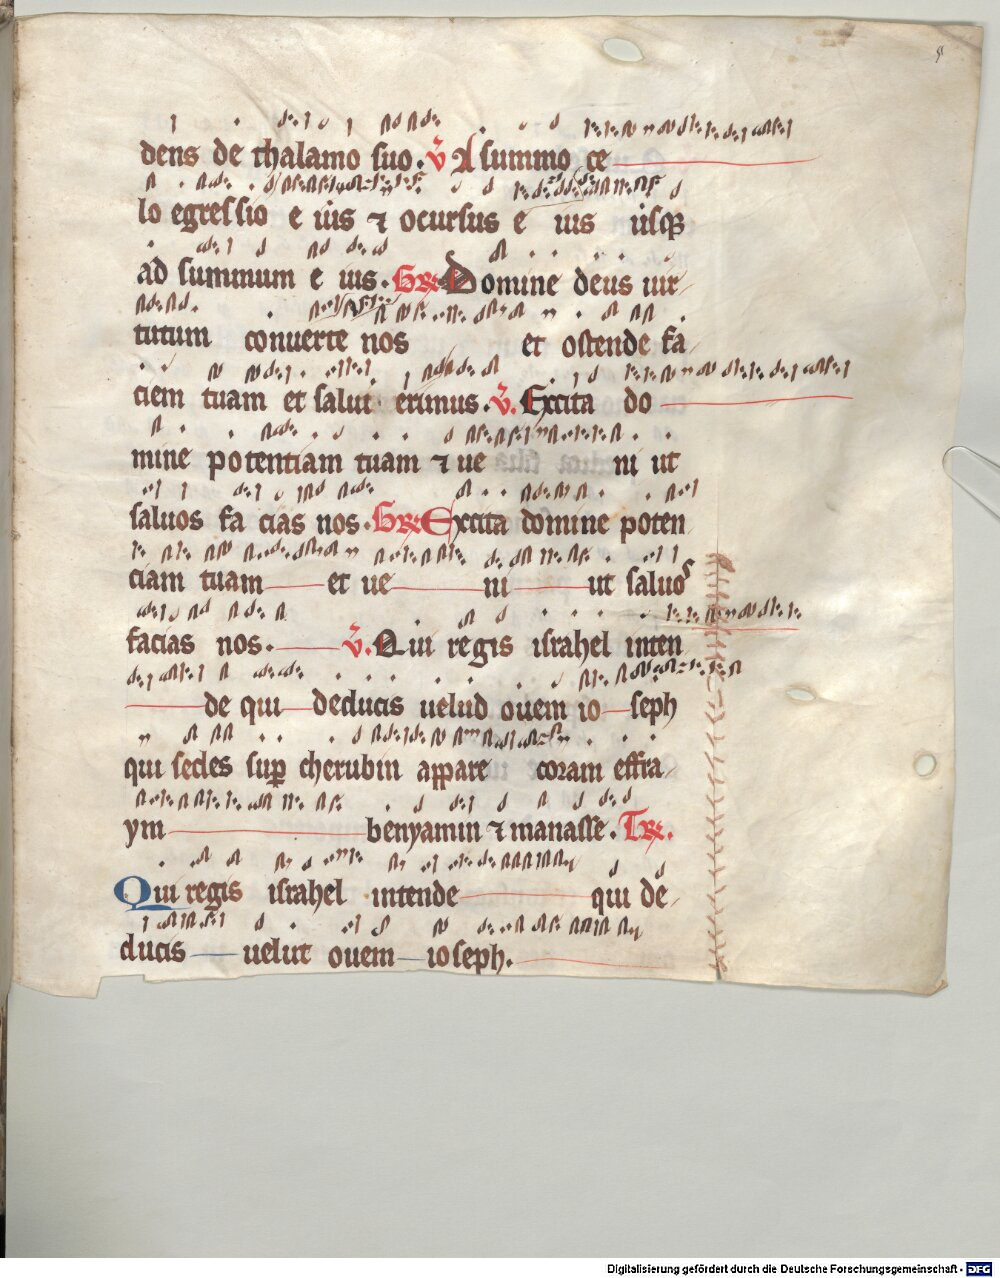 dens de thalamo suo. V̄ A summo ce
lo egressio e ius ⁊ ocursus e ius usq̄
ad summum e ius. Gr̄ Domine deus uir
tutum conuerte nos et ostende fa
ciem tuam et salui erimus. V̄. Excita do
mine potentiam tuam ⁊ ue ni ut
saluos fa cias nos. Gr̄ Excita domine poten
ciam tuam et ue ni ut saluos
facias nos. V̄. Qui regis israhel inten
de qui deducis uelud ouem io seph
qui sedes sup̄ cherubin appare coram effra
ym benyamin ⁊ manasse. Tr̄.
Qui regis israhel intende qui de
ducis uelut ouem ioseph.
Digitalisierung gefördert durch die Deutsche Forschungsgemeinschaft - DFG